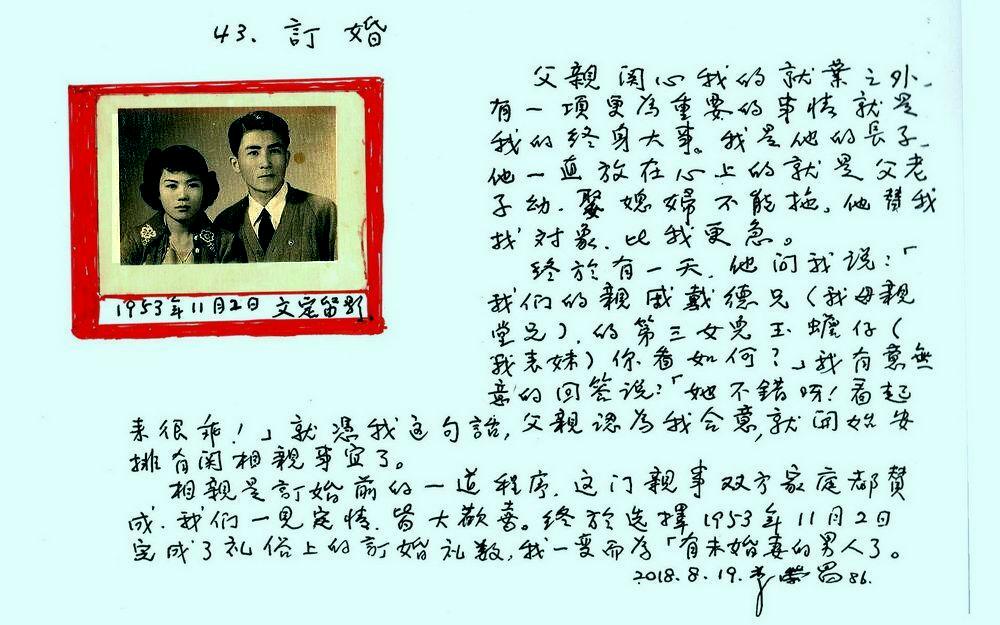 43. 訂婚
1953年11月2日 文定留影
父親関心我的就業之外、
有一項更為重要的事情就是
我的終身大事。我是他的長子、
他一直放在心上的就是父老
子幼、娶媳婦不能拖、他替我
找对象、比我更急。
終於有一天、他问我说：「
我们的親戚戴德兄（我母親
堂兄）、的第三女兒玉蟾仔（
我表妹）你看如何？」我有意無
意的回答说：「她不錯呀！看起
来很乖！」就憑我这句話，父親認為我合意，就開始安
排有関相親事宜了。
相親是訂婚前的一道程序、这门親事双方家庭都賛
成、我们一見定情、皆大歡喜。終於选擇1953年11月2日
完成了礼俗上的訂婚礼数，我一变而為「有未婚妻的男人了。
2018.8.19. 李榮昌86.